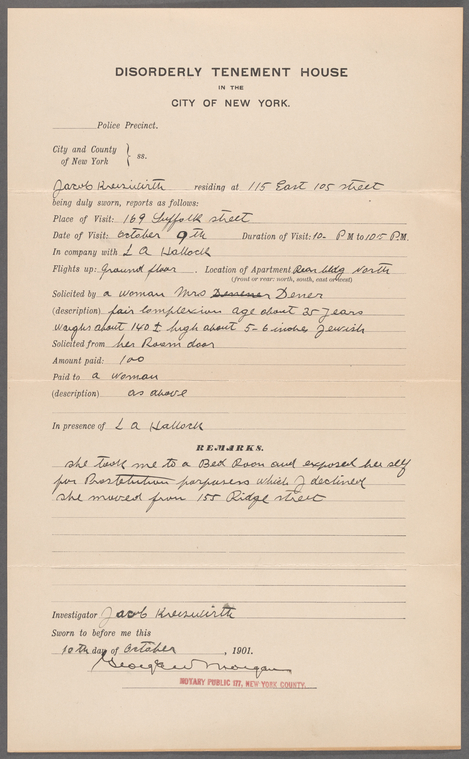 DISORDERLY TENEMENT HOUSE
IN THE
CITY OF NEW YORK.
Police Precinct.
City and County
of New York } ss.
Jacob Kreiswirth residing at 115 East 105 street
being duly sworn, reports as follows:
Place of Visit: 169 Suffolk street
Date of Visit: October 9th Duration of Visit: 10- P M to 10 5 P.M.
In company with L A Hallock
Flights up: Ground floor. Location of Apartment Rear bldg North
(front or rear: north, south, east or west)
Solicited by a woman Mrs Dener
(description) fair complexion age about 35 years
waughs about 140 # high about 5-6 inches Jewish
Solicited from her Room door
Amount paid: 100
Paid to a woman
(description) as above
In presence of L A Hallock
REMARKS.
She took me to a Bed Room and exposed her self
for Prostetution porpuses which I declined
She moved from 155 Ridge street
Investigator Jacob Kreiswirth
Sworn to before me this
10th day of October, 1901.
George W Morgan
NOTARY PUBLIC 177, NEW YORK COUNTY.